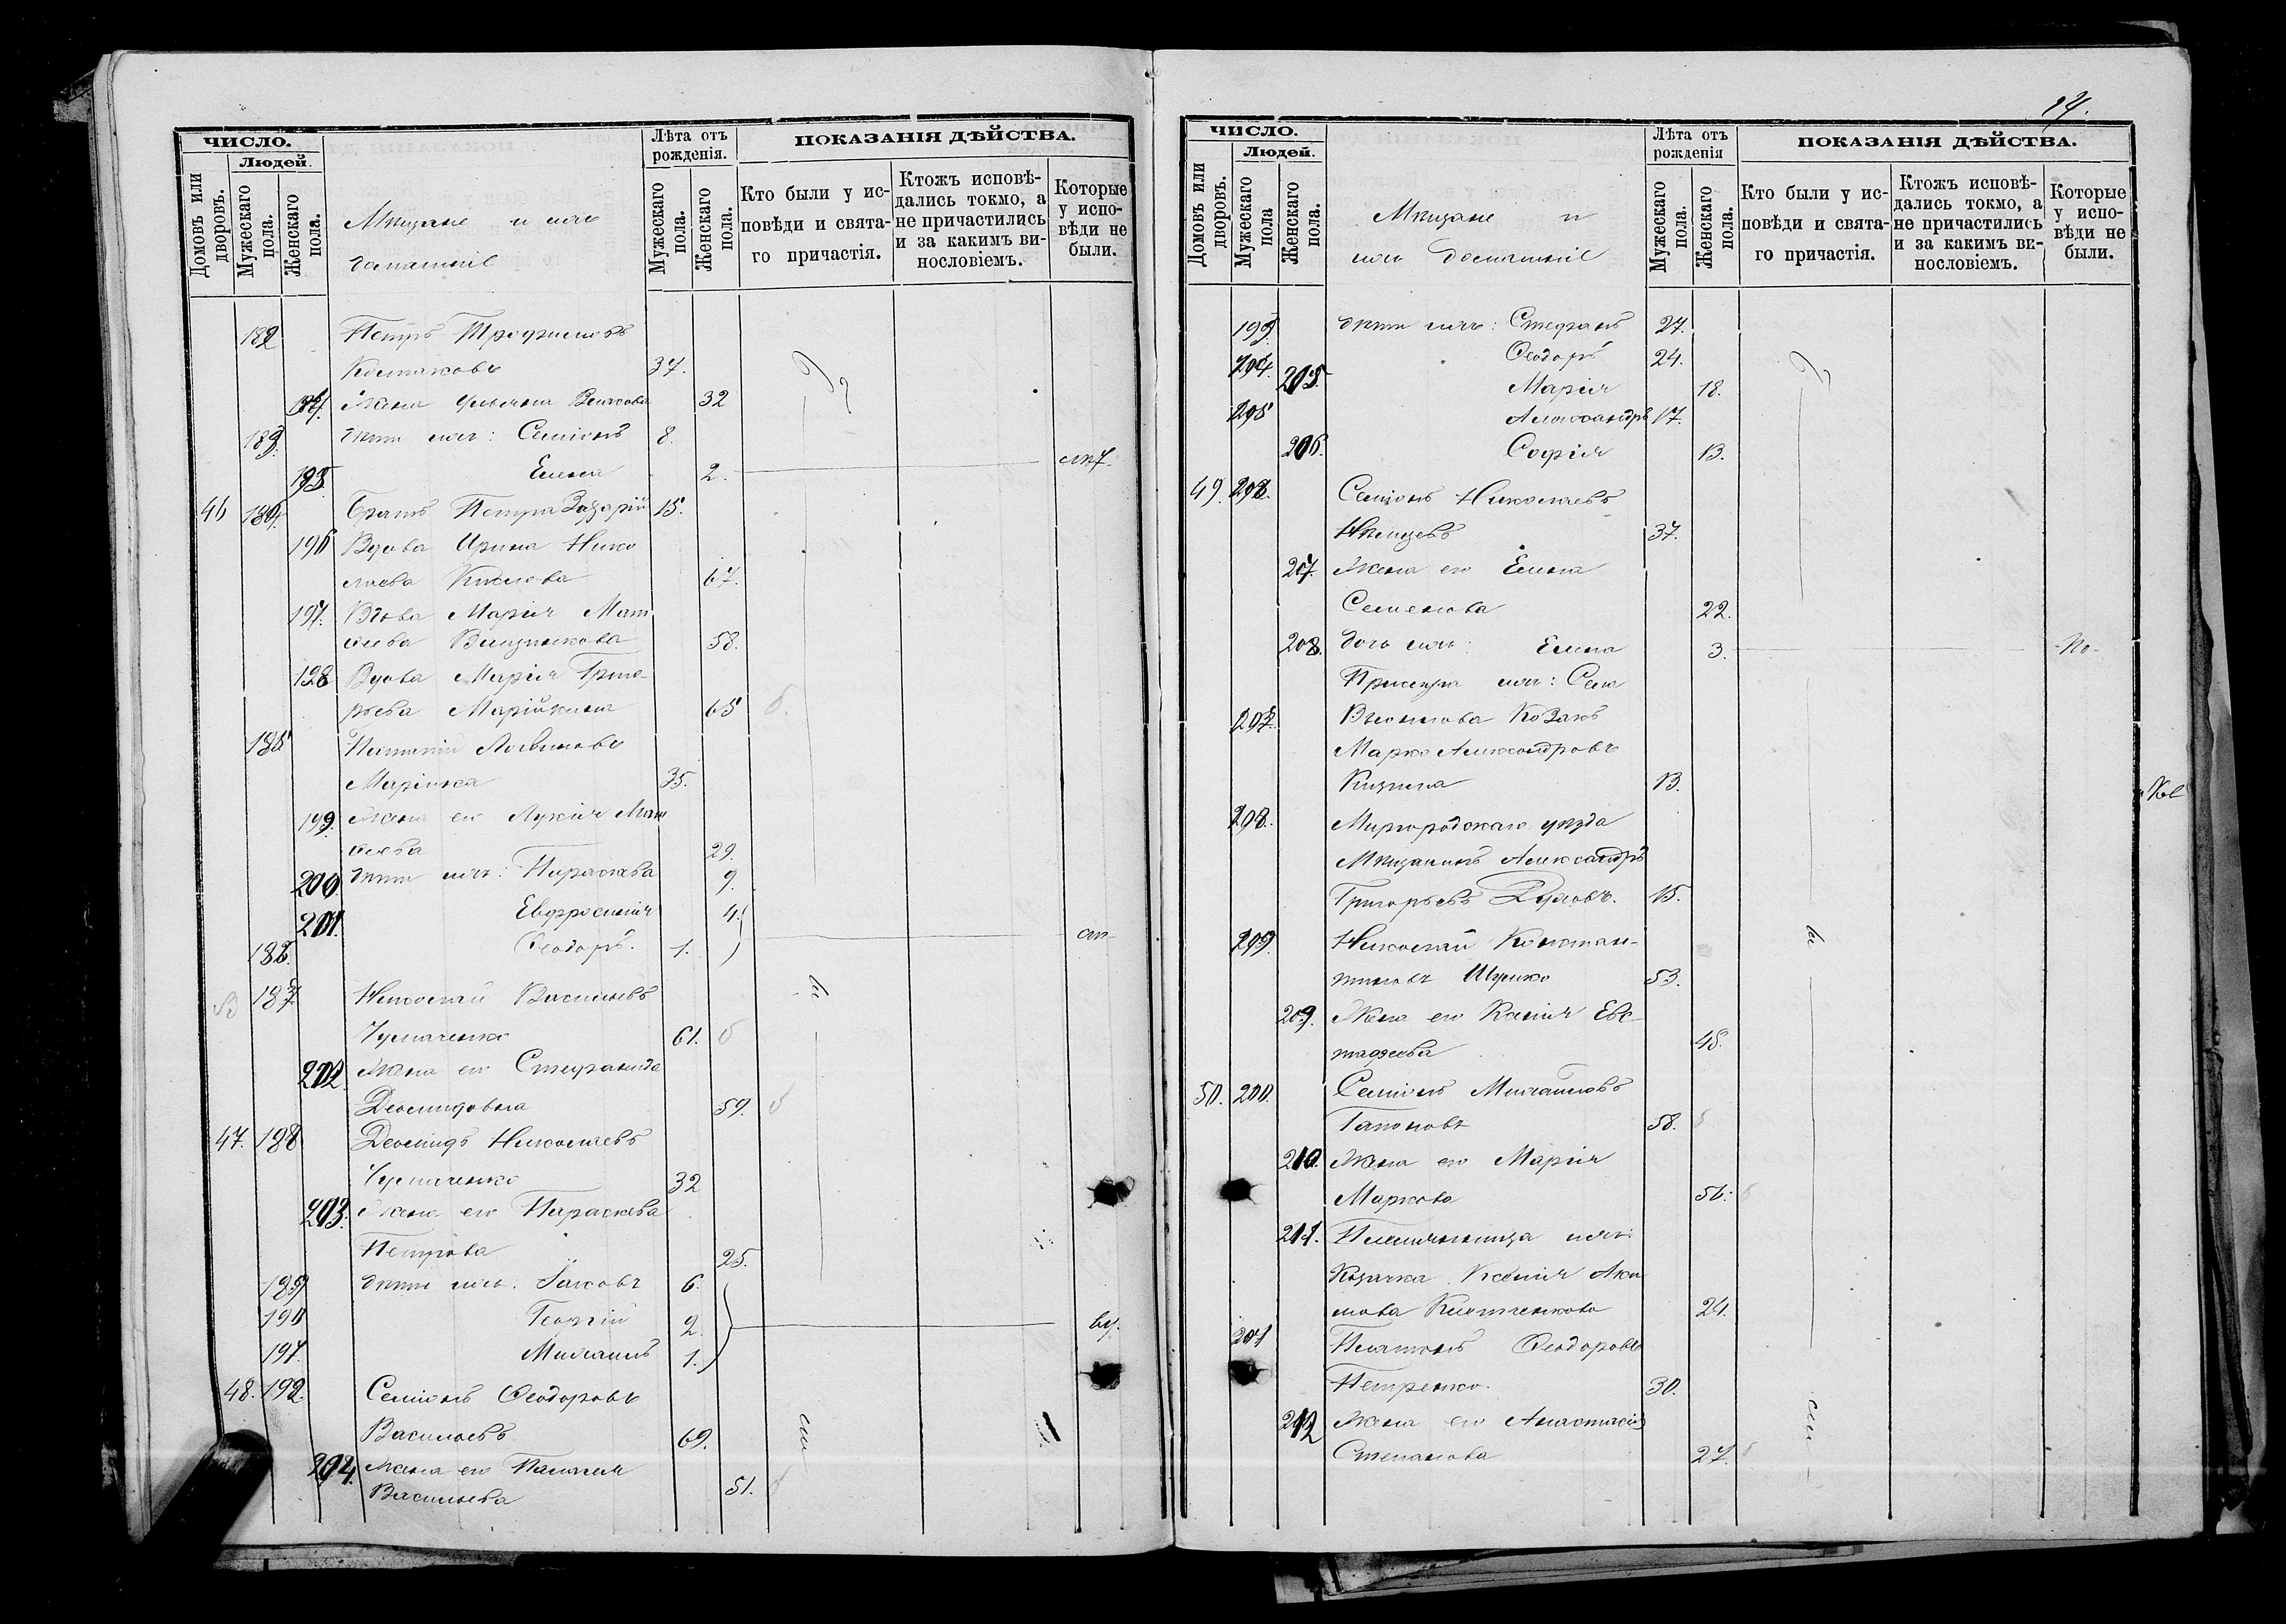 ЧИСЛО.
Людей.
Домовъ или дворовъ.
Мужескаго пола.
Женскаго пола.
Мѣщане и ихъ
домашніе
Лѣта отъ рожденія.
Мужескаго пола.
Женскаго пола.
ПОКАЗАНІЯ ДѢЙСТВА.
Кто были у исповѣди и святаго причастія.
Ктожъ исповѣдались токмо, а не причастились и за какимъ винословіемъ.
Которые у исповѣди не были.
182 Петръ Трофимовъ
37.
Жена Ульяна 32
183. дѣти ихъ: Семіонъ 8.
195. Елена 2.
46 184. Братъ Петра Захарій 15.
196 Вдова Ирина Нико
лаева 67.
197. Вдова Марія Мат
ѳеева 58.
198 Вдова Марія Григо-
рьева 65
185
35.
199. Жена его Лукія Мат
ѳеева 29.
200. дѣти ихъ: Параскева 9.
201. Евфросинія 4.
186. Ѳеодоръ. 1.
187 Николай Васильевъ
Чумаченко 61.
202 Жена его Стефанида
Діомидовна 59.
47. 188 Діомидъ Николаевъ
Чумаченко 32
203. Жена его Параскева
Петрова 25.
189 дѣти ихъ: Іаковъ 6.
190 Георгій 2.
191. Михаилъ 1.
48. 192. Семіонъ Ѳеодоровъ
Васильевъ 69.
204. Жена его Пелагія
Васильева 51.
ЧИСЛО.
Людей.
Домовъ или дворовъ.
Мужескаго пола
Женскаго пола.
Мѣщане и
ихъ домашніе
Лѣта отъ рожденія
Мужескаго пола.
Женскаго пола.
ПОКАЗАНІЯ ДѢЙСТВА.
Кто были у исповѣди и святаго причастія.
Ктожъ исповѣдались токмо, а не причастились и за какимъ винословіемъ.
Которые у исповѣди не были.
193. дѣти ихъ: Стефанъ 27.
194. Ѳеодоръ 24.
205. Марія 18.
195 Александръ 17.
206. София 13.
49. Семіонъ Николаевъ
Нѣмцевъ 37.
207. Жена его Елена
Семенова 22.
208. дочь ихъ: Елена 3.
Прислуга ихъ:
Козакъ
Марко Александровъ
13.
198. Миргородскаго уѣзда
Мѣщанинъ Александръ
Григорьевъ 15.
199. Николай Констан-
тиновъ Шулико 53.
209. Жена его Ксенія Евс-
тафіева 48.
50. 200. Семіонъ Михайловъ
Гапоновъ 58.
210. Жена его Марія
Маркова 56.
211. Племянница ихъ
Козачка Ксенія Аки
мова 24.
201 Платонъ Ѳеодоровъ
Петренко. 30.
212 Жена его Анастасія
Степанова 27.